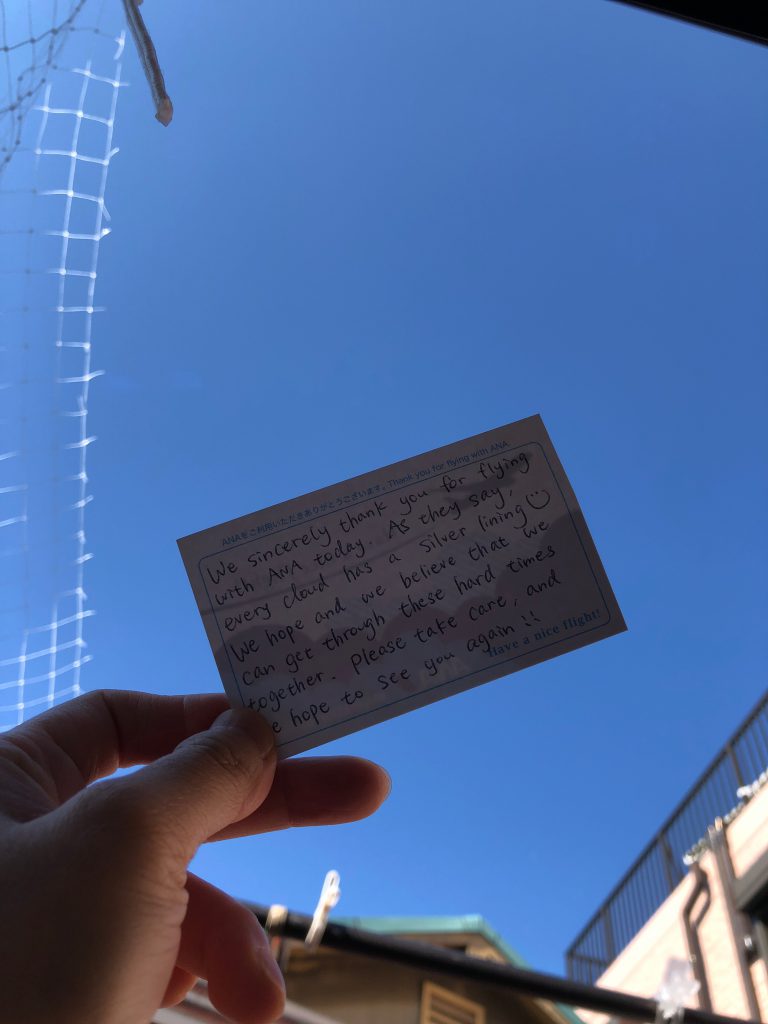 ANAをご利用いただきありがとうございます。Thank you for flying with ANA
We sincerely thank you for flying
with ANA today. As they say,
every cloud has a silver lining☺
We hope and we believe that we
can get through these hard times
together. Please take care, and
e hope to see you again !!
Have a nice flight!